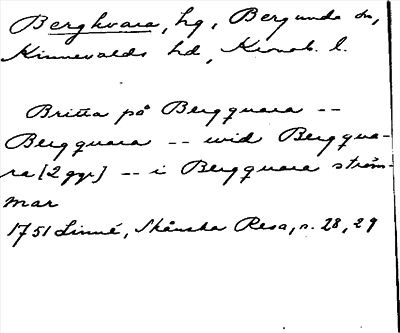 Bergkvara, hg, Bergunda sn,
Kinnevalds hd, Kronob. l.
Britta på Bergquara --
Bergquara -- wid Bergqua-
ra [2 ggr] -- i Bergquara ström-
mar
1751 Linné, Skånska Resa, s. 28, 29